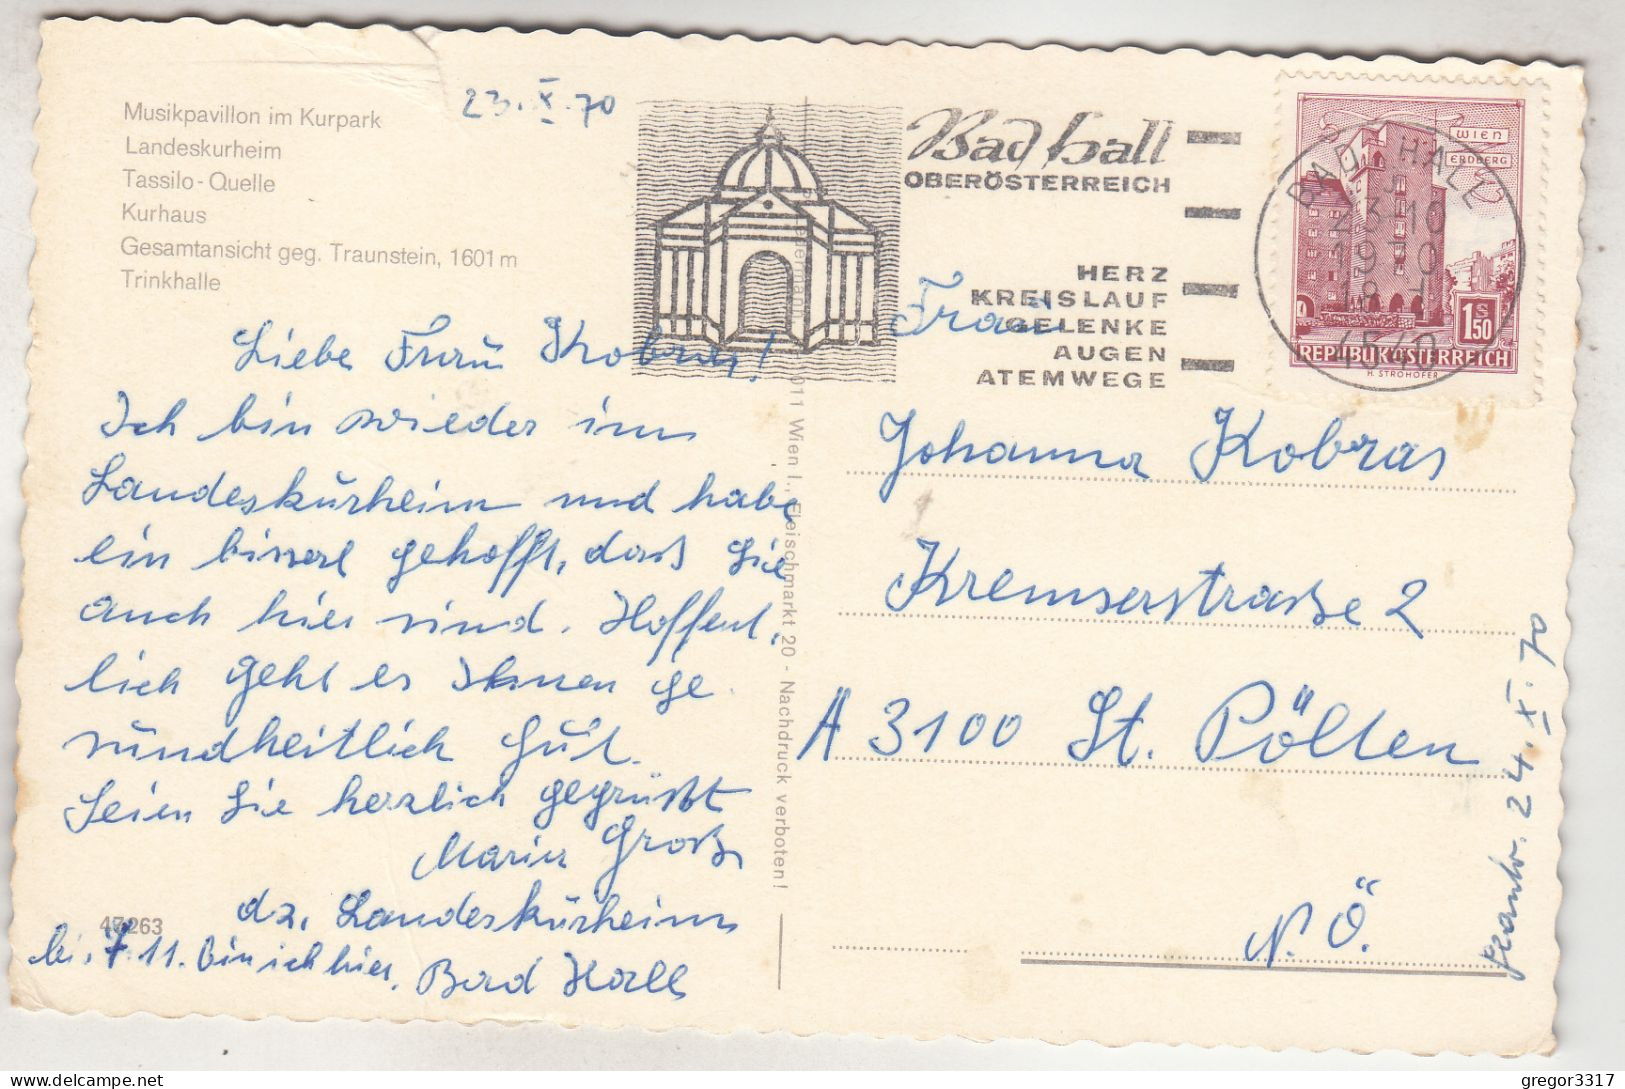 Musikpavillon im Kurpark
Landeskurheim
Tassilo-Quelle
Kurhaus
Gesamtansicht geg. Traunstein, 1601 m
Trinkhalle
23. X. 70
Bad Hall
OBERÖSTERREICH
HERZ
KREISLAUF
GELENKE
AUGEN
ATEMWEGE
BAD HALL
23.10
1970
4540
WIEN
ERDBERG
1.50
S
REPUBLIK ÖSTERREICH
H. STROHOFER
Liebe Frau Kobras!
Ich bin wieder im
Landeskurheim und habe
ein bisserl gehofft, daß Sie
auch hier sind. Hoffent-
lich geht es Ihnen ge-
sundheitlich gut.
Seien Sie herzlich gegrüßt
Maria Groß
dz. Landeskurheim
Bad Hall
bis 7. 11. bin ich hier.
47263
011 Wien I., Fleischmarkt 20 - Nachdruck verboten!
Frau
Johanna Kobras
Kremserstraße 2
A 3100 St. Pölten
N.Ö.
24. X. 70
gregor3317